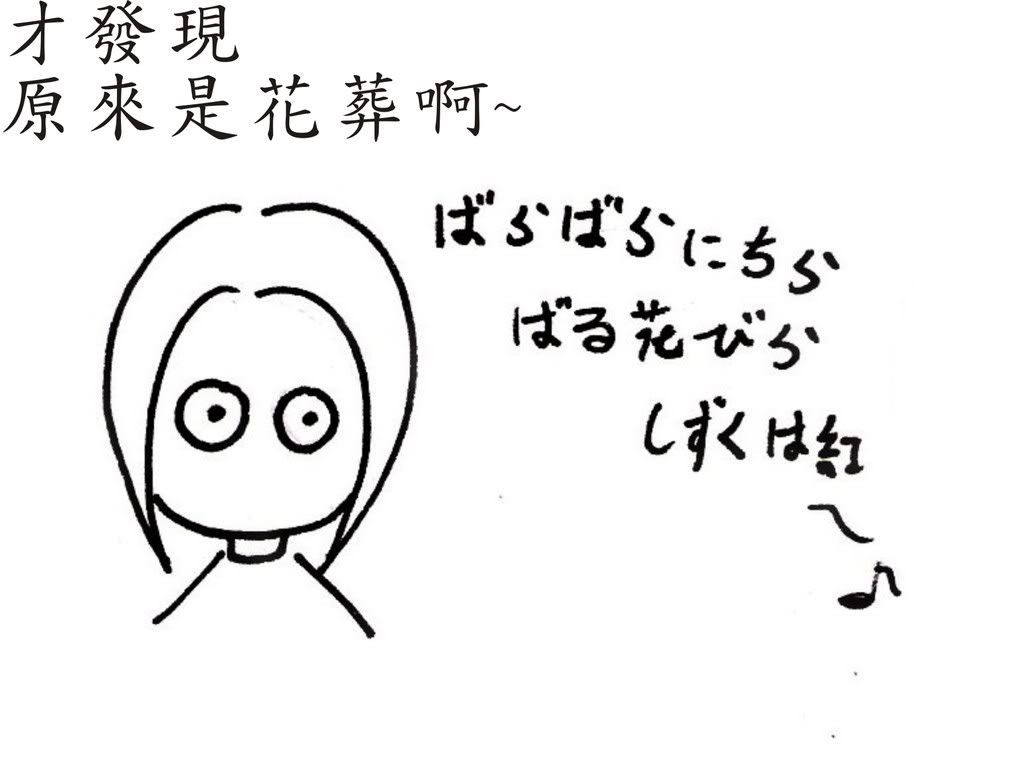 才發現
原來是花葬啊~
ばらばらにちら
ばる花びら
しずくは紅
～♪